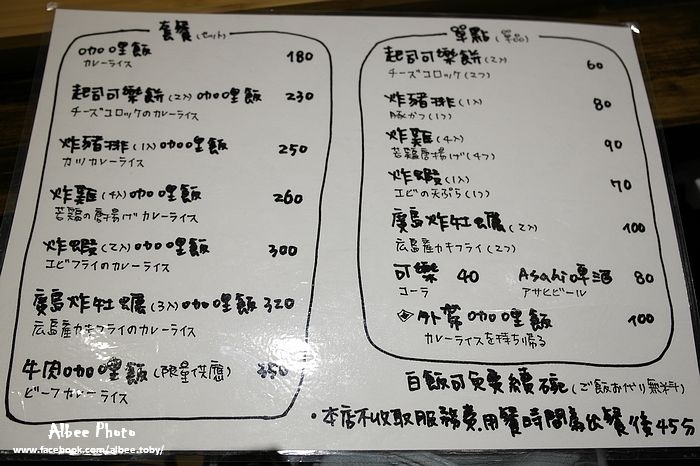 套餐(セット)
咖哩飯 180
カレーライス
起司可樂餅(2入)咖哩飯 230
チーズコロッケのカレーライス
炸豬排(1入)咖哩飯 250
カツカレーライス
炸雞(4入)咖哩飯 260
若鶏の唐揚げカレーライス
炸蝦(2入)咖哩飯 300
エビフライのカレーライス
廣島炸牡蠣(3入)咖哩飯 320
広島産カキフライのカレーライス
牛肉咖哩飯(限量供應) 350
ビーフカレーライス
單點(單品)
起司可樂餅(2入) 60
チーズコロッケ(2つ)
炸豬排(1入) 80
豚かつ(1つ)
炸雞(4入) 90
若鶏唐揚げ(4つ)
炸蝦(1入) 70
エビの天ぷら(1つ)
廣島炸牡蠣(2入) 100
広島産カキフライ(2つ)
可樂 40 Asahi啤酒 80
コーラ アサヒビール
外帶咖哩飯 100
カレーライスを持ち帰る
白飯可免費續碗(ご飯おかわり無料)
・本店不收取服務費,用餐時間為出餐後45分
Albee Photo
www.facebook.com/albee.toby/